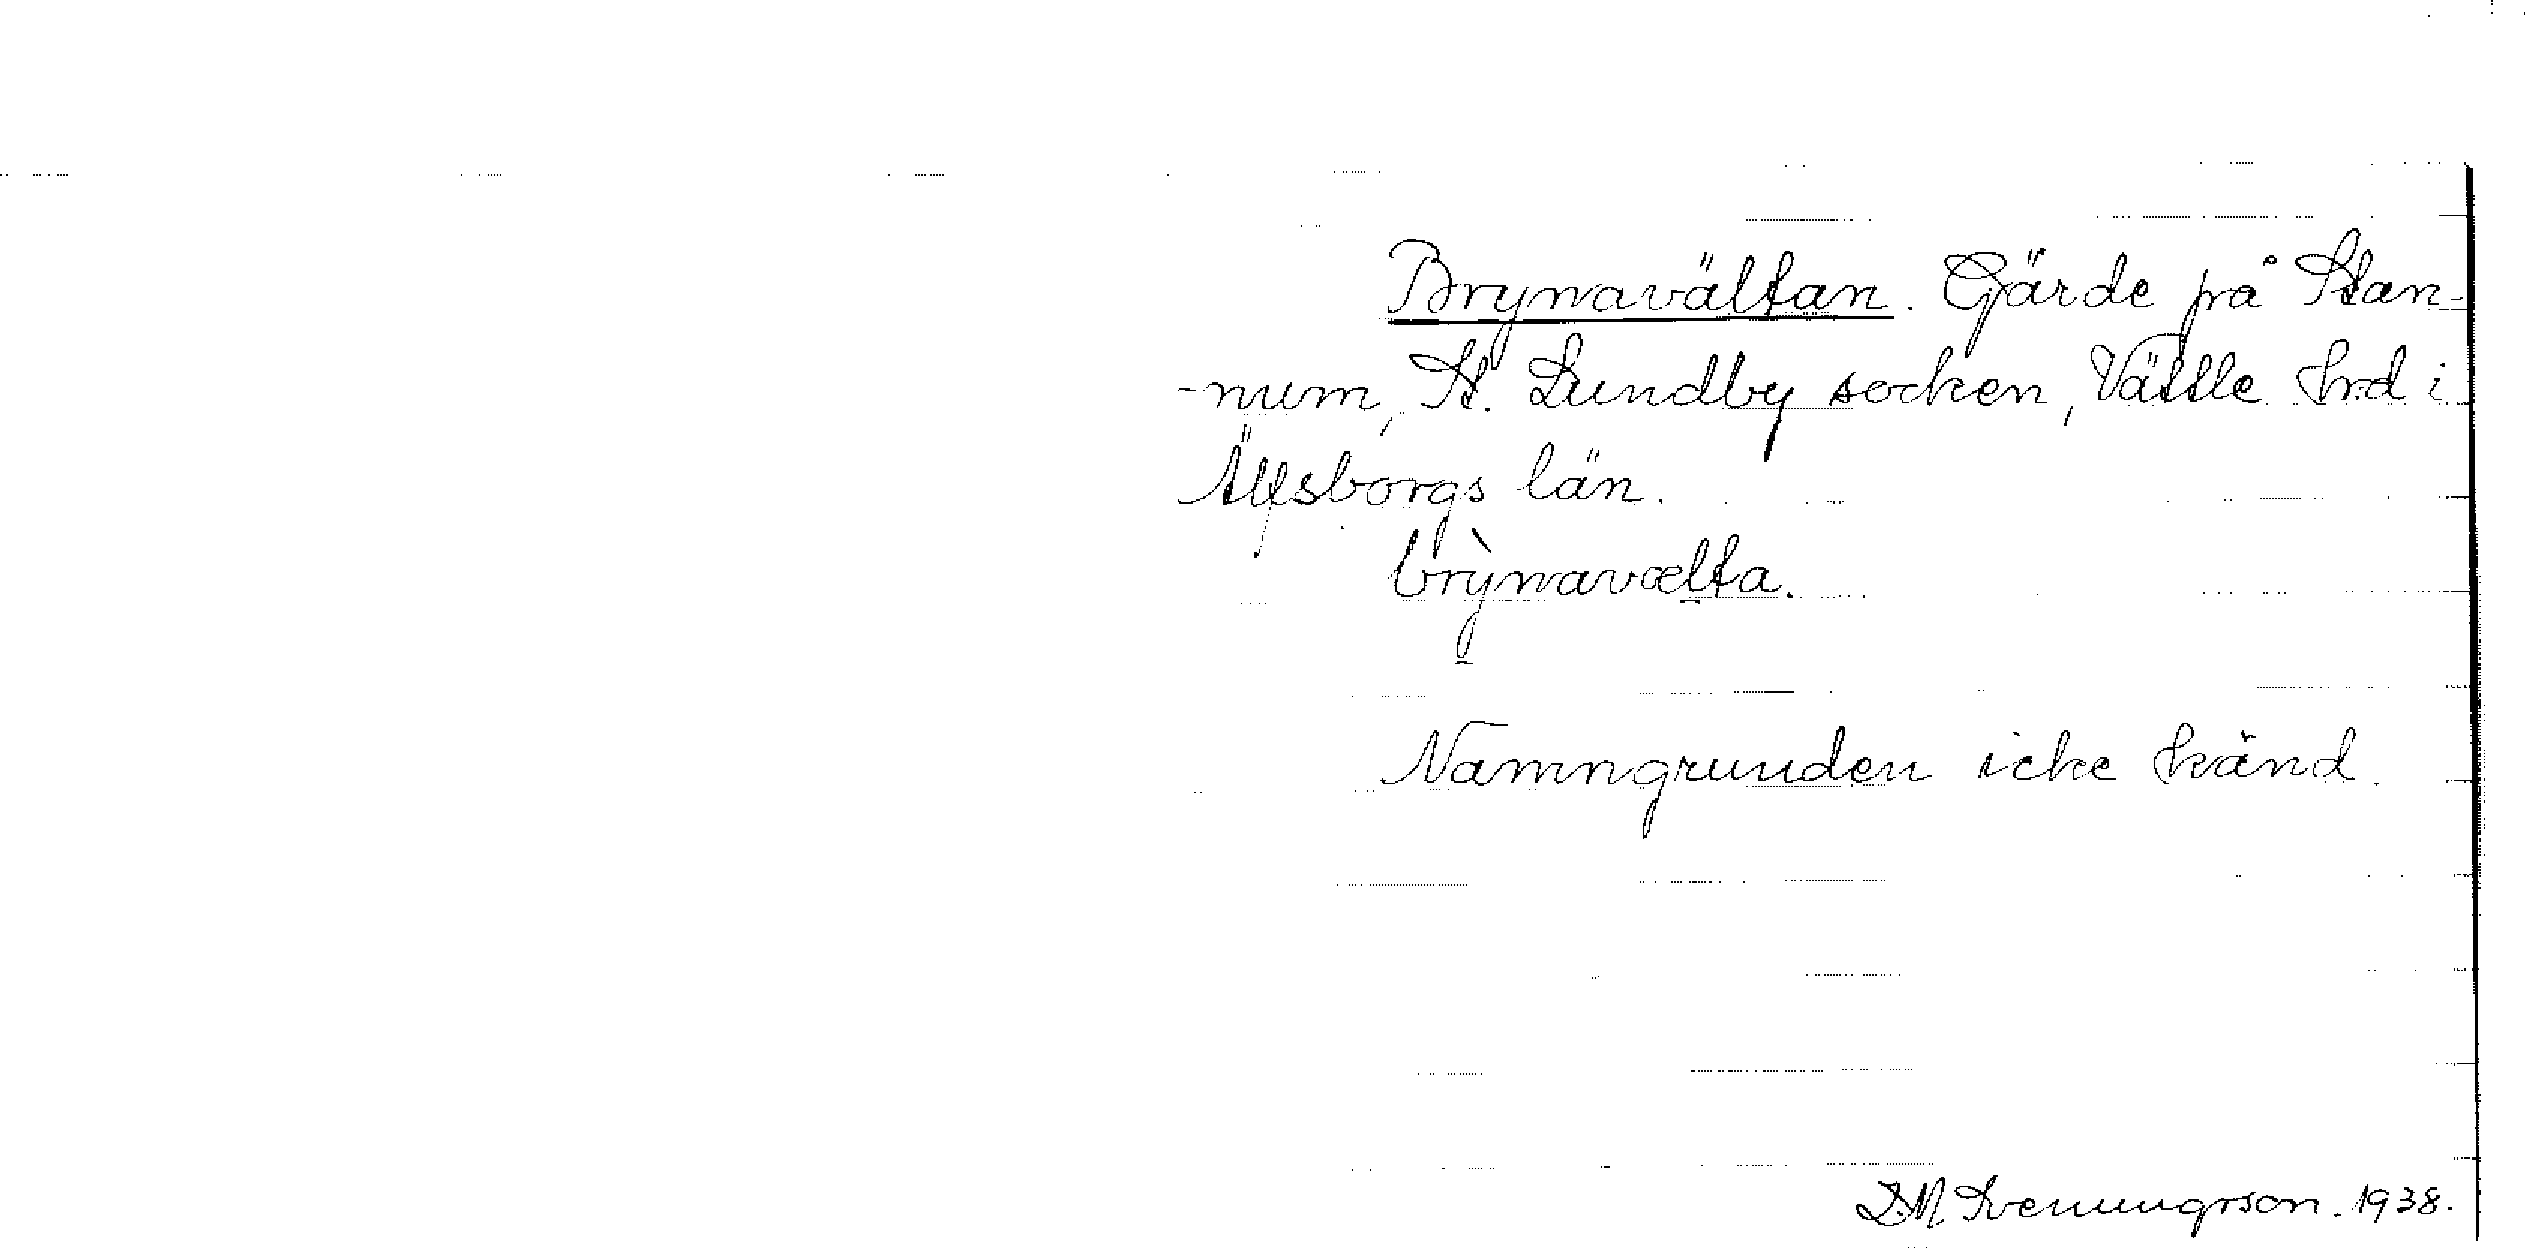 Brynavältan. Gärde på Stan-
-num, St. Lundby socken, Vättle hrd i
Älfsborgs län.
brỳnavælta.
Namngrunden icke känd.
D.N. Svenungsson. 1938.